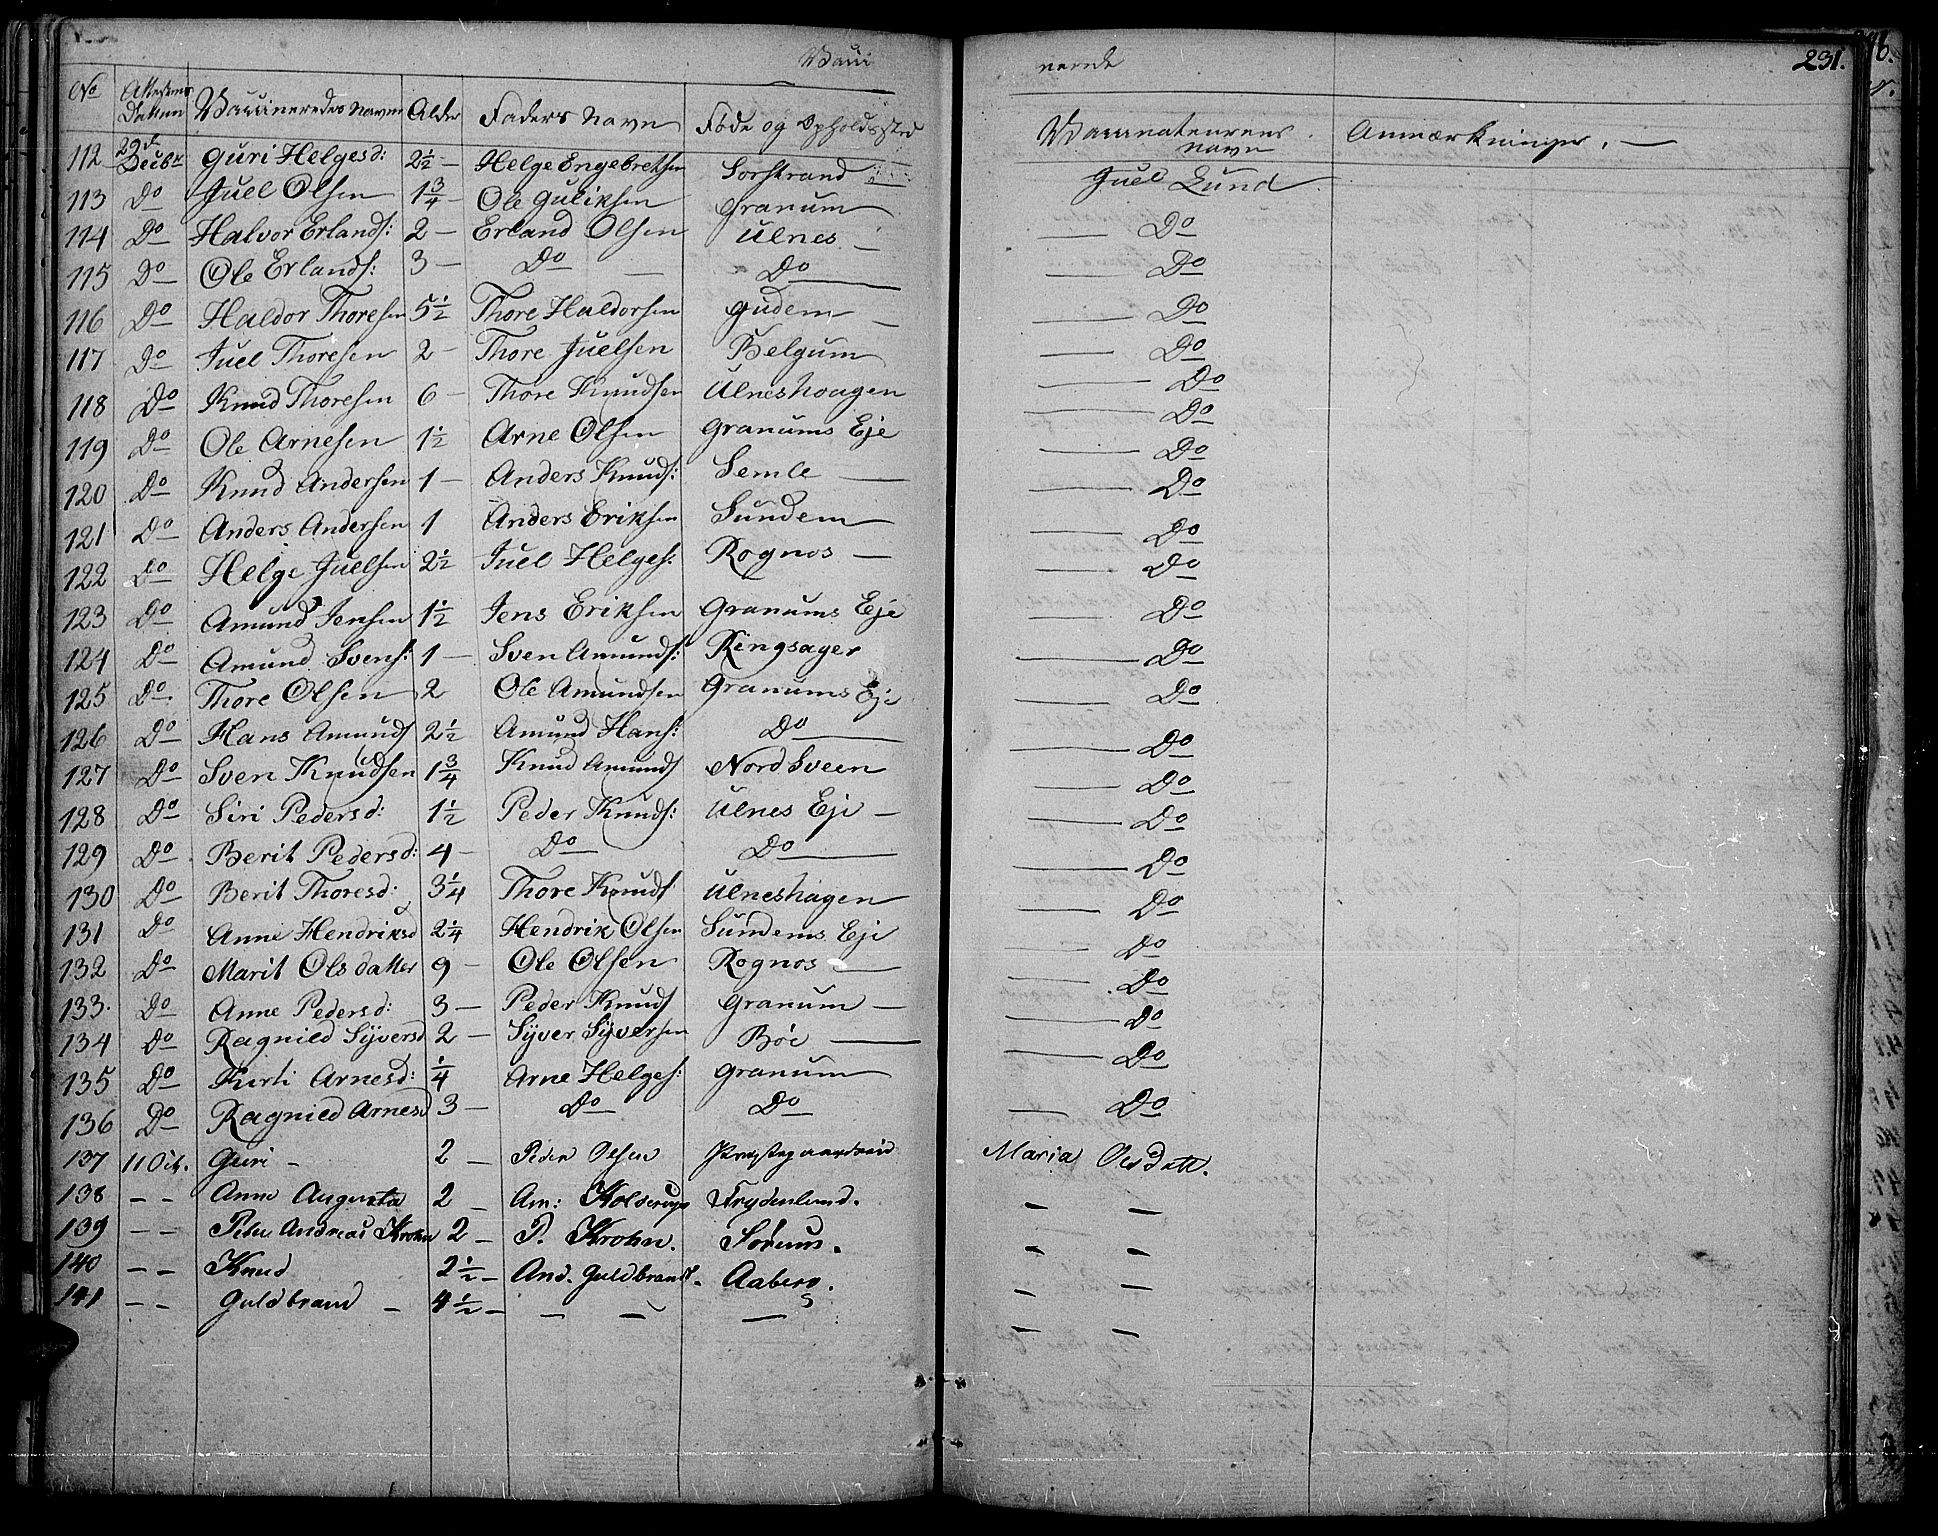 Vacci nerede 231.
No Attestens Datum Vaccineredes Navne Alder Faders Navn Føde og Opholdssted Vaccinateurens navn Anmærkninger. —
112 29d Decbr Guri Helgesd: 2½ — Helge Engebretsen Sorstrand Juel Lund
113 Do Juel Olsen 1¾ — Ole Guliksen Granum
114 Do Halvor Erlands: 2 — Erland Olsen Ulnes — — Do
115 Do Ole Erlands: 3 — Do — Do — — Do
116 Do Haldor Thoresen 5½ Thore Haldorsen Gudem — — Do
117 Do Juel Thoresen 2 — Thore Juelsen Belgum — Do
118 Do Knud Thoresen 6 — Thore Knudsen Ulneshoagen — Do
119 Do Ole Arnesen 1½ Arne Olsen Granums Eje — Do
120 Do Knud Andersen 1 — Anders Knuds: Semle — — Do
121 Do Anders Andersen 1 Anders Eriksen Sundem — Do
122 Do Helge Juelsen 2½ Juel Helges: Rognos — — Do
123 Do Amund Jensen 1½ Jens Eriksen Granums Eje — Do
124 Do Amund Svens: 1 — Sven Amunds: Ringsager — Do
125 Do Thore Olsen 2 Ole Amundsen Granums Eje — Do
126 Do Hans Amunds 2½ Amund Hans: Do — — Do
127 Do Sven Knudsen 1¾ Knud Amunds Nord Sveen — Do
128 Do Siri Pedersd: 1½ Peder Knuds: Ulnes Eje — — Do
129 Do Berit Pedersd: 4 — Do Do — — Do
130 Do Berit Thoresd: 3¼ Thore Knuds Ulneshagen — Do
131 Do Anne Hendriksd 2¼ Hendrik Olsen Sundems Eje — Do
132 Do Marit Olsdatter 9 — Ole Olsen Rognos — — Do
133. Do Anne Pedersd: 3 — Peder Knuds Granum — — Do
134 Do Ragnied Syversd 2 — Syver Syversen Böe — — Do
135 Do Kirti Arnesd: ¼ Arne Helges: Granum — Do
136 Do Ragnied Arnesd 3 — Do Do — Do
137 11 Oct. Guri — 2 — Peder Olsen Præstegaardseie Maria Olsdatt.
138 — — Anne Augusta 2 — Am: Kolderup Frydenlund. — —
139 — — Peder Andreas Krohn 2 — P. Krohn. Sørums. — —
140 — — Knud 2½ — And. Guldbrands. Aaberg. — —
141 — — Guldbrand — 4½ — — — — — —